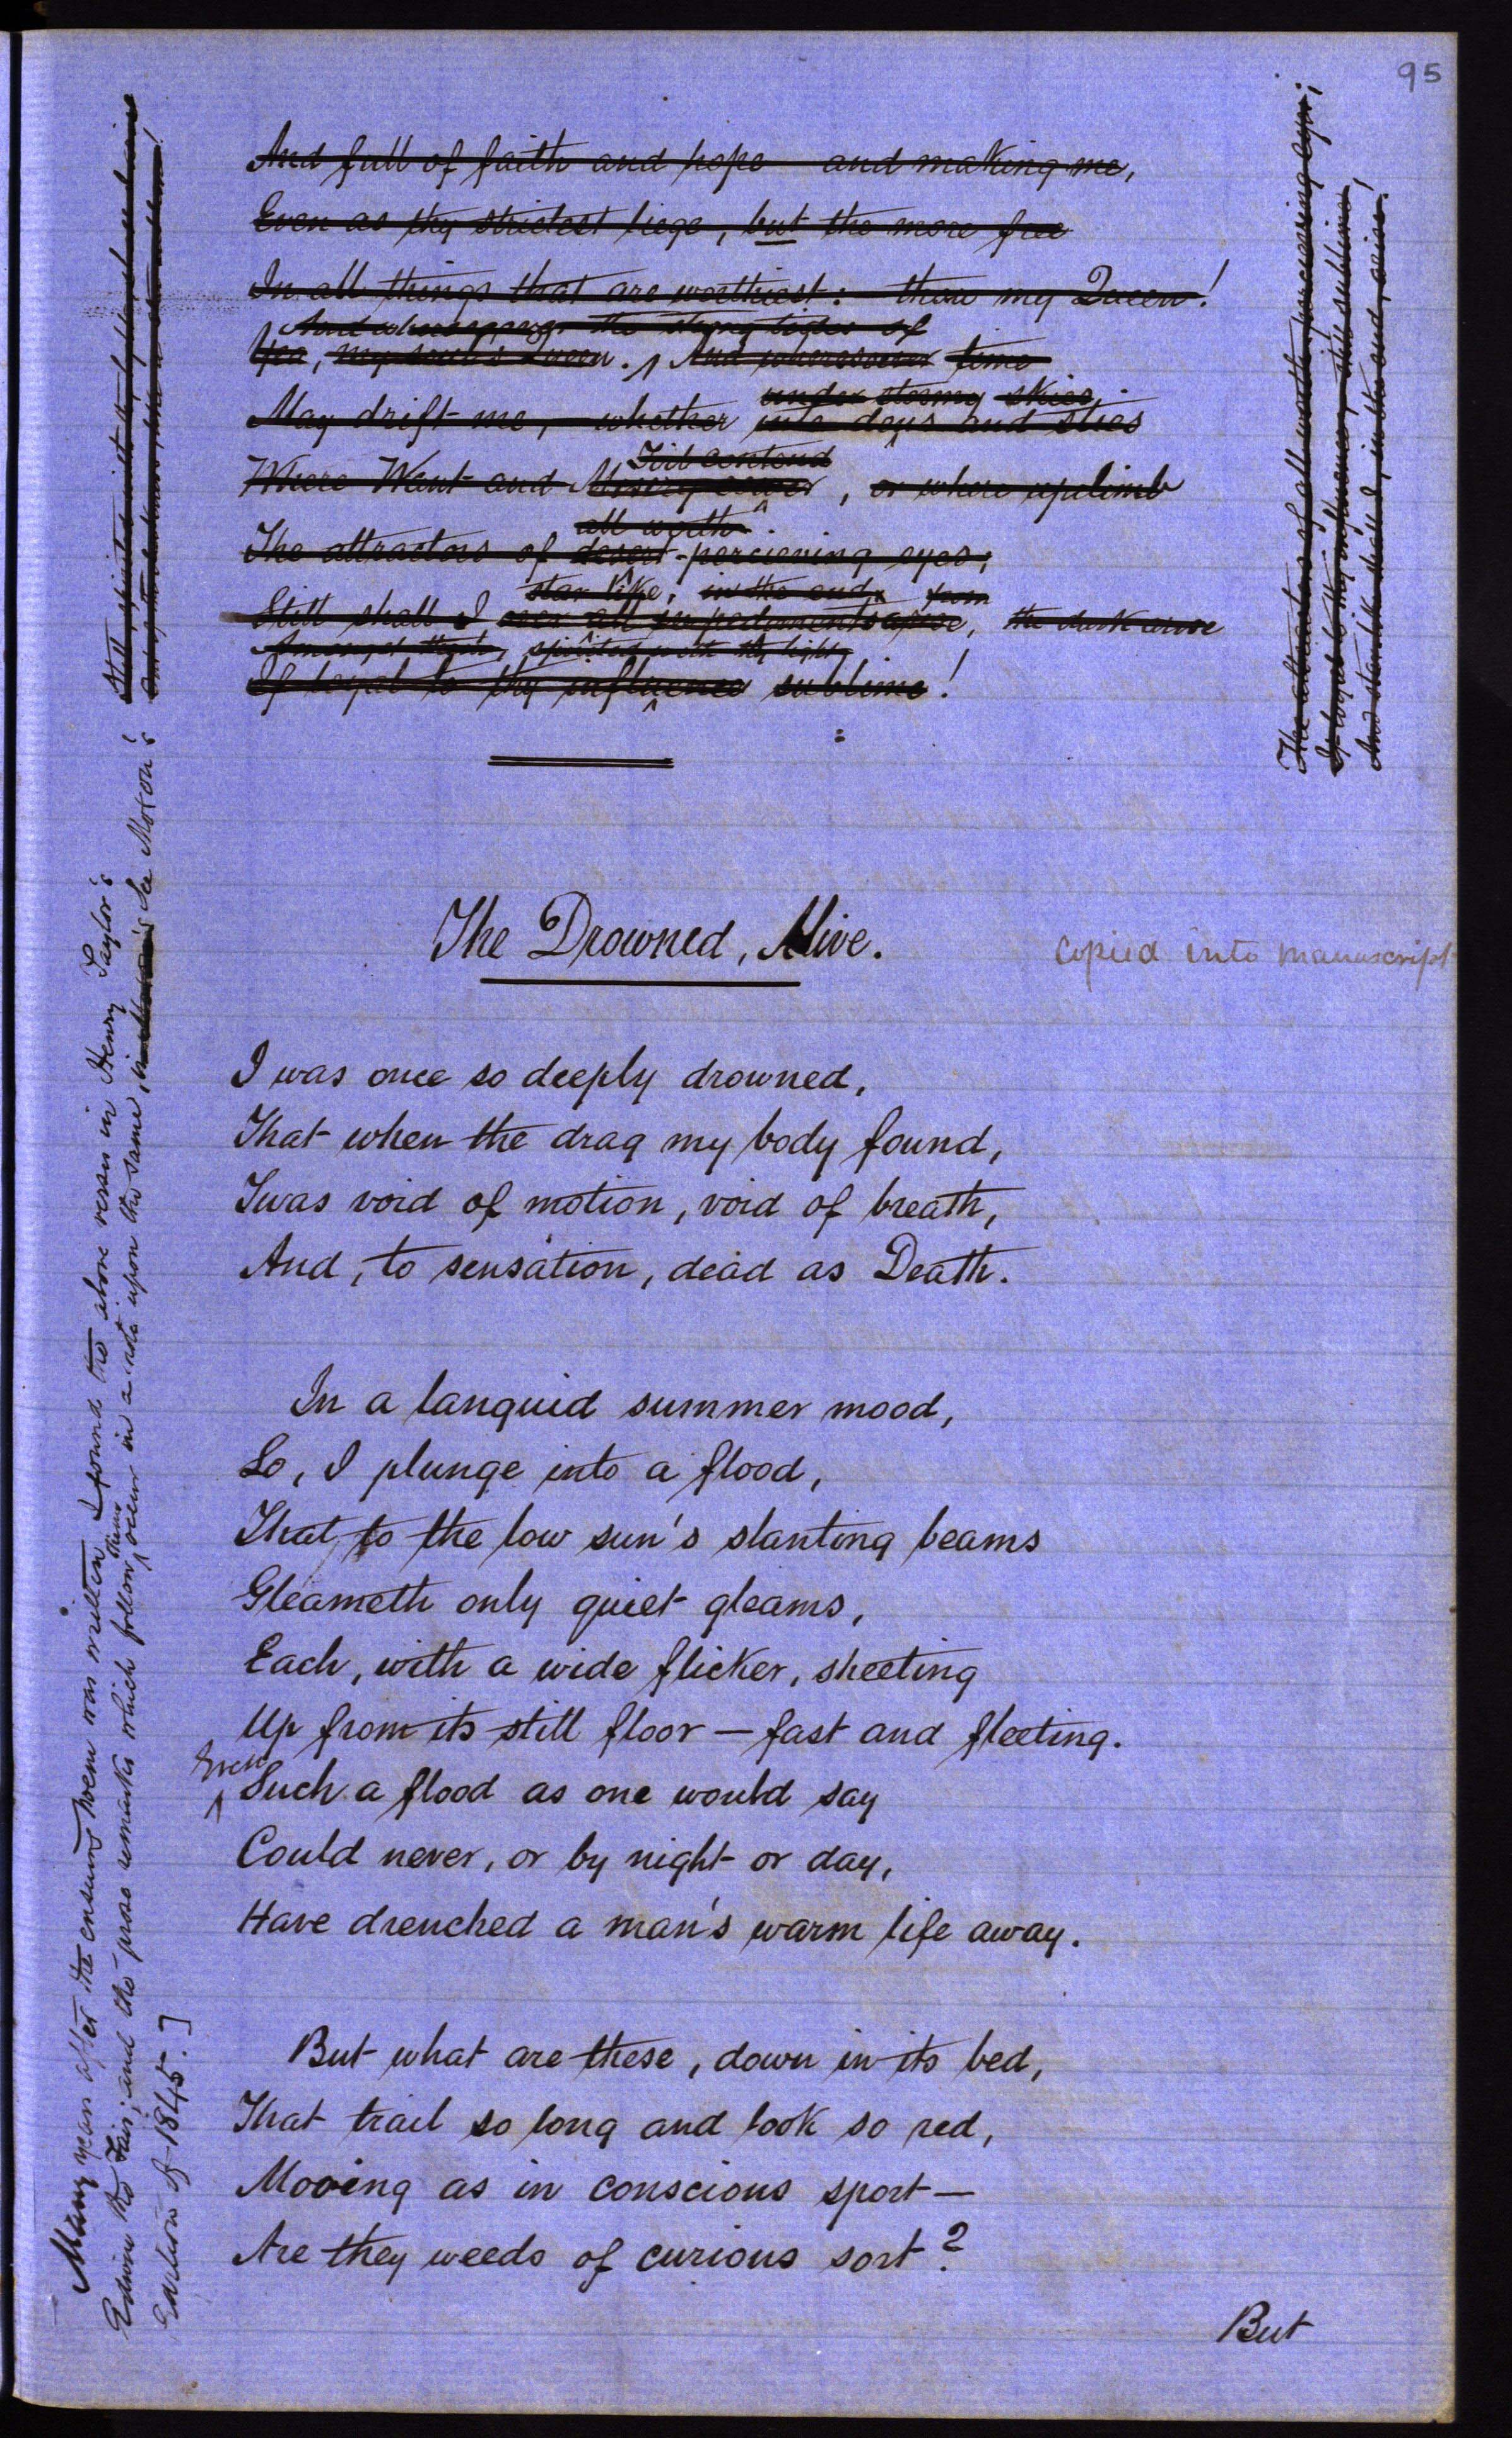 95
And full of faith and hope and making me,
Even as thy strictest liege, but the more free
In all things that are worthiest: thou my Queen!
And the strong tides of
Yea, my soul's Queen. And wheresoever time
under stormy skies,
May drift me, whether into days and
Toil contend
Where Want and Misery, or where upclimb
all worth
The attractors of desert-perceiving eyes;
star like, in the end, from
Still shall I over all impediments arise, the dark arise
Amongst them, spirited with thy light,
If loyal to thy influence sublime!
The attractors of all worth-perceiving eyes;
If loyal to thy influence, still sublime,
And starlike shall I, in the end, arise!
Still spirited with thy
The Drowned, Alive.
copied into manuscript
I was once so deeply drowned,
That when the drag my body found,
I was void of motion, void of breath,
And, to sensation, dead as Death.
In a languid summer mood,
Lo, I plunge into a flood,
That to the low sun's slanting beams
Gleameth only quiet gleams,
Each, with a wide flicker, sheeting
Up from its still floor — fast and fleeting.
Even
Such a flood as one would say
Could never, or by night or day,
Have drenched a man's warm life away.
But what are these, down in its bed,
That trail so long and look so red,
Mooing as in conscious sport—
Are they weeds of curious sort?
But
Many years after the ensuing poem was written I found the above verses in Henry Taylor's
Edwin the Fair; and the prose remarks which follow them occur in a note upon the same, in See Moxon's
Edition of 1845.]